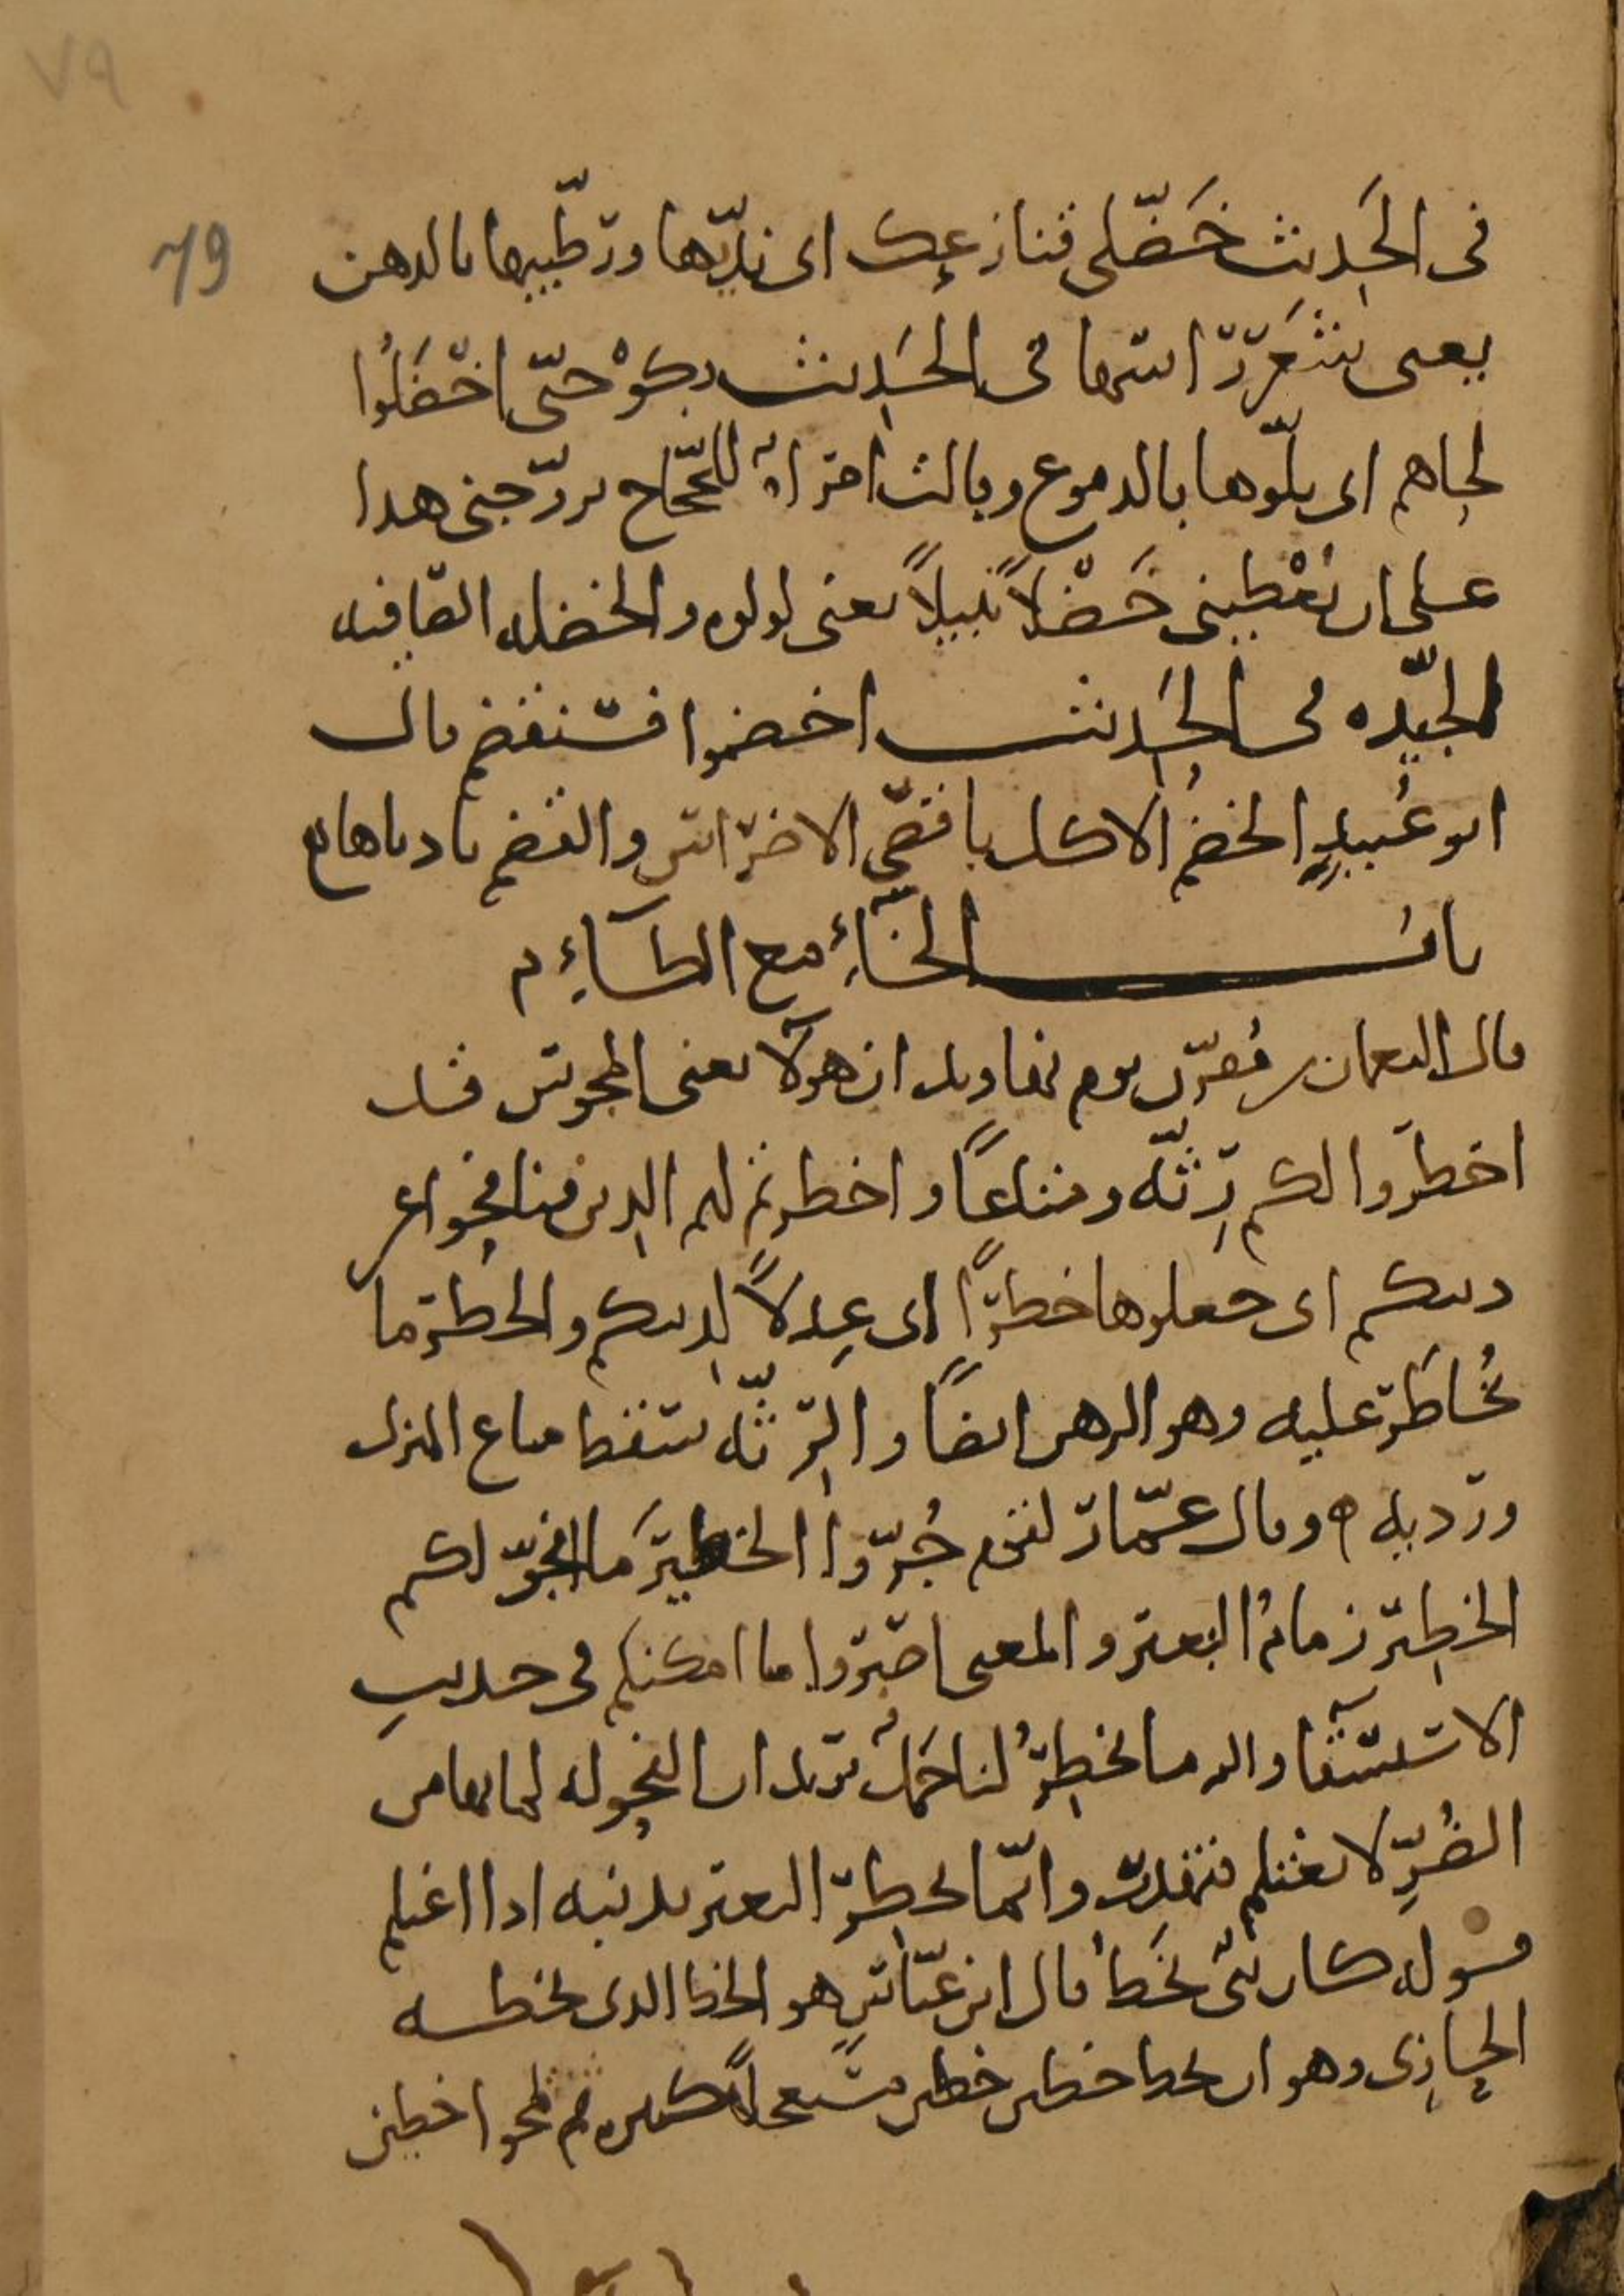 ٧٩
79
فى الحَديث خَضّلى قنازعك اى نديّها ورطّبيها بالدهن
يعنى شَعرَ راسها فى الحَديث بكوْا حتّى اخْضَلُوا
لحاهم اى بلّوها بالدموع وقالت امراة للحجّاح تزوّجنى هدا
على ان يُعْطينى خَضْلاً نبيلاً يعنى لولوه والخضله الصّافيه
الجيّده فى الحَديث اخضموا فسنقضم قال
ابو عُبيدٍ الخضمُ الاكل باقصى الاضراس والقضم بادناها
باب الخآء مع الطآء
قال النعمان بن مُقرّن يوم نهاوند ان هولآ يعنى المجوس قد
اخطروا لكم رِثّه ومتاعًا واخطرتم لهم الدين فنافحوا عن
دينكم اى جعلوها خطرًا اى عِدلاً لدينكم والخطر ما
يُخاطَر عليه وهو الرهن ايضًا والرِّثّه سَقط متاع المنزل
ورديه وقال عمّار لقوم جُرّوا الخطيرَ ما انجرّ لكم
الخطير زمامُ البعير والمعنى اصبروا ما امكنكم فى حديث
الاستسقآ والله ما يخطِرُ لنا جَملٌ يريد ان الفحوله لما بها من
الضُرِّ لا تغتلم فتهدر وانّما يخطِر البعير بذنبه اذا اغتلم
قوله كان نبىّ يخُطّ قال ابن عبّاسٍ هو الخط الذى يخطه
الحازِى وهو ان يخط خطين خطين مستعجلاً كثيره ثم يمحوا خطين